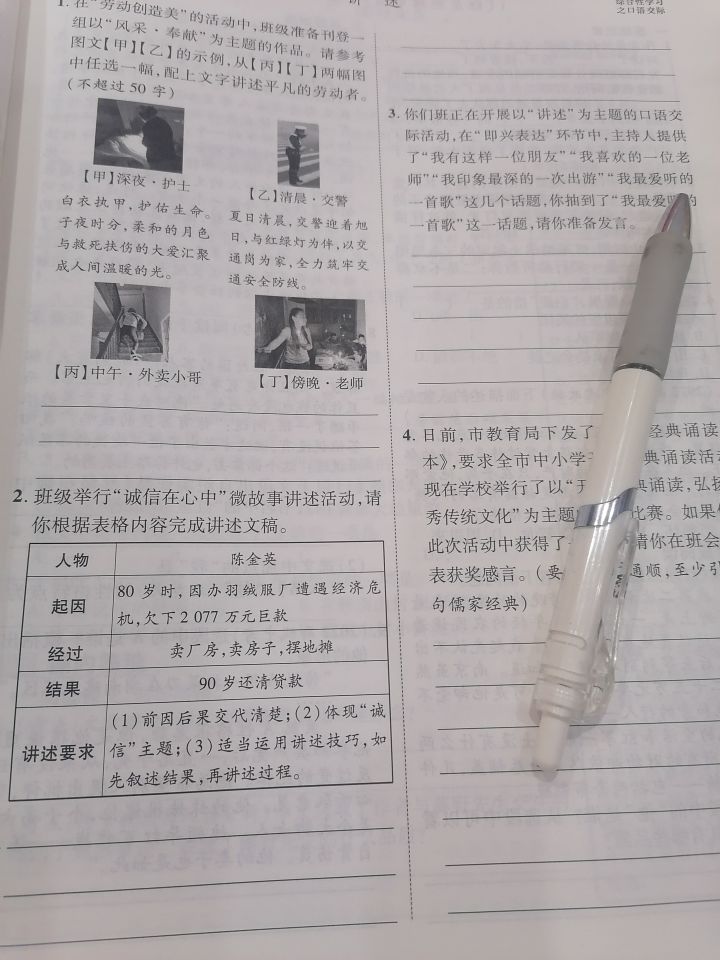 讲 述
综合性学习
之口语交际
1. 在“劳动创造美”的活动中,班级准备刊登一
组以“风采·奉献”为主题的作品。请参考
图文【甲】【乙】的示例,从【丙】【丁】两幅图
中任选一幅,配上文字讲述平凡的劳动者。
(不超过 50 字)
【甲】深夜·护士
白衣执甲,护佑生命。
子夜时分,柔和的月色
与救死扶伤的大爱汇聚
成人间温暖的光。
【乙】清晨·交警
夏日清晨,交警迎着旭
日,与红绿灯为伴,以交
通岗为家,全力筑牢交
通安全防线。
【丙】中午·外卖小哥
【丁】傍晚·老师
2. 班级举行“诚信在心中”微故事讲述活动,请
你根据表格内容完成讲述文稿。
人物 陈金英
起因 80 岁时,因办羽绒服厂遭遇经济危
机,欠下 2 077 万元巨款
经过 卖厂房,卖房子,摆地摊
结果 90 岁还清贷款
讲述要求 (1)前因后果交代清楚;(2)体现“诚
信”主题;(3)适当运用讲述技巧,如
先叙述结果,再讲述过程。
3. 你们班正在开展以“讲述”为主题的口语交
际活动,在“即兴表达”环节中,主持人提供
了“我有这样一位朋友”“我喜欢的一位老
师”“我印象最深的一次出游”“我最爱听的
一首歌”这几个话题,你抽到了“我最爱听的
一首歌”这一话题,请你准备发言。
4. 日前,市教育局下发了 经典诵读
本》,要求全市中小学 典诵读活
现在学校举行了以“ 典诵读,弘扬
秀传统文化”为主题 比赛。如果
此次活动中获得了 请你在班会
表获奖感言。(要 通顺,至少引
句儒家经典)